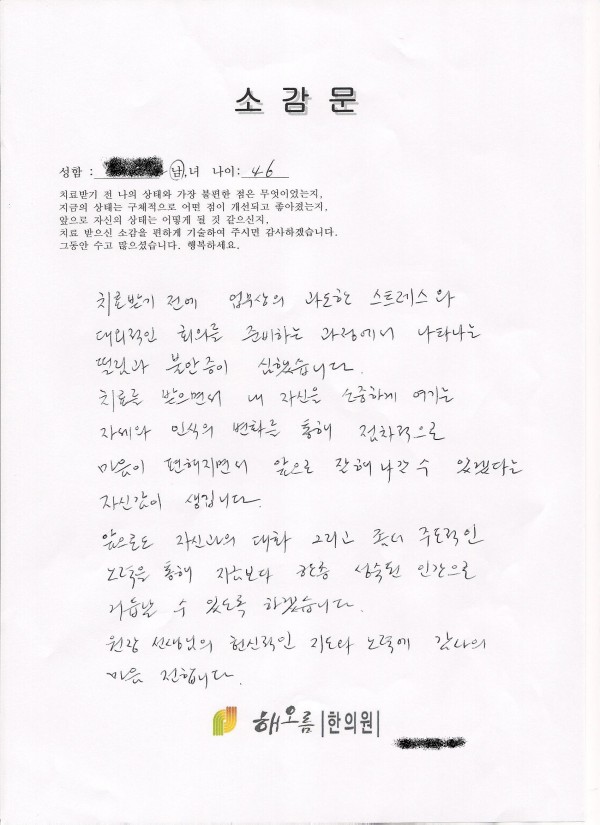 소 감 문
성함 : 남,녀 나이: 46
치료받기 전 나의 상태와 가장 불편한 점은 무엇이었는지,
지금의 상태는 구체적으로 어떤 점이 개선되고 좋아졌는지,
앞으로 자신의 상태는 어떻게 될 것 같으신지,
치료 받으신 소감을 편하게 기술하여 주시면 감사하겠습니다.
그동안 수고 많으셨습니다. 행복하세요.
치료받기 전에 업무상의 과도한 스트레스와
대외적인 회의를 준비하는 과정에서 나타나는
떨림과 불안증이 심했습니다.
치료를 받으면서 내 자신을 소중하게 여기는
자세와 인식의 변화를 통해 점차적으로
마음이 편해지면서 앞으로 잘해나갈 수 있겠다는
자신감이 생깁니다.
앞으로도 자신과의 대화 그리고 좀더 주도적인
노력을 통해 지금보다 한층 성숙된 인간으로
거듭날 수 있도록 하겠습니다.
원장 선생님의 헌신적인 지도와 노력에 감사의
마음 전합니다.
해오름 |한의원|